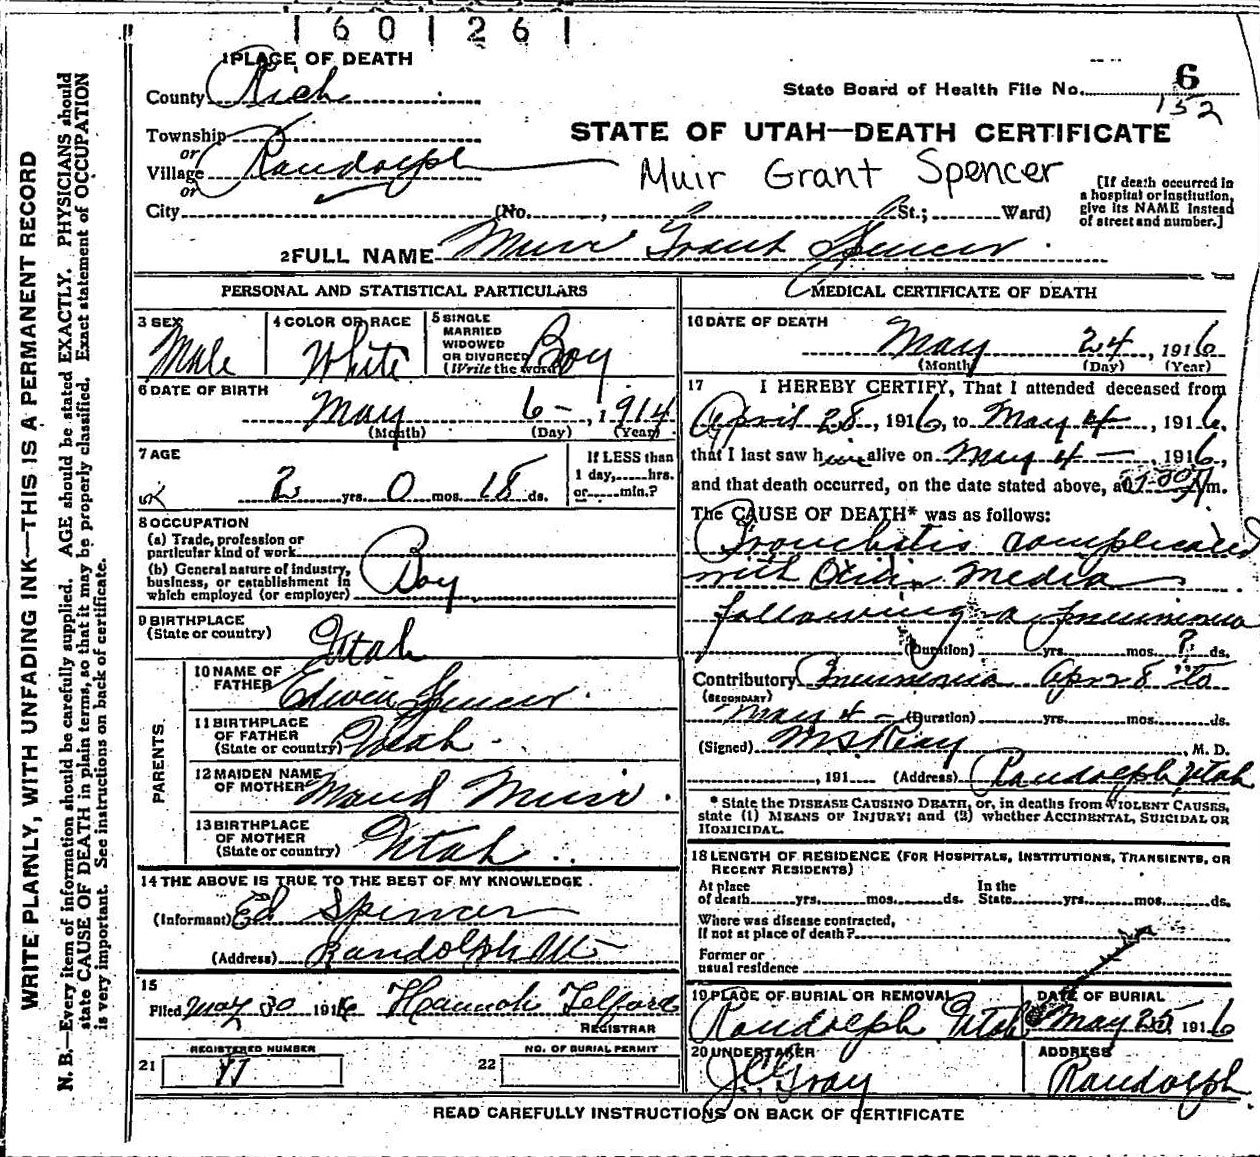 1 6 0 1 2 6 1
1 PLACE OF DEATH
County Rich
State Board of Health File No. 6
152
Township
or
Village Randolph
or
City (No. , St.; Ward)
STATE OF UTAH—DEATH CERTIFICATE
Muir Grant Spencer
[If death occurred in
a hospital or institution,
give its NAME instead
of street and number.]
2 FULL NAME Muir Grant Spencer
PERSONAL AND STATISTICAL PARTICULARS
3 SEX
Male
4 COLOR OR RACE
White
5 SINGLE
MARRIED
WIDOWED
OR DIVORCED
(Write the word)
Boy
6 DATE OF BIRTH
May 6 - , 1914
(Month) (Day) (Year)
7 AGE
2 yrs. 0 mos. 18 ds.
If LESS than
1 day, hrs.
or min.?
8 OCCUPATION
(a) Trade, profession or
particular kind of work
(b) General nature of industry,
business, or establishment in
which employed (or employer)
Boy
9 BIRTHPLACE
(State or country)
Utah
PARENTS
10 NAME OF
FATHER Edwin Spencer
11 BIRTHPLACE
OF FATHER
(State or country) Utah
12 MAIDEN NAME
OF MOTHER Maud Muir
13 BIRTHPLACE
OF MOTHER
(State or country) Utah
14 THE ABOVE IS TRUE TO THE BEST OF MY KNOWLEDGE
(Informant) Ed Spencer
(Address) Randolph Ut
15
Filed May 30 1916 Hannah Telford
REGISTRAR
21 REGISTERED NUMBER
22 NO. OF BURIAL PERMIT
MEDICAL CERTIFICATE OF DEATH
16 DATE OF DEATH
May 24 , 1916
(Month) (Day) (Year)
17 I HEREBY CERTIFY, That I attended deceased from
April 28, 1916, to May 4 , 1916,
that I last saw him alive on May 4 - , 1916,
and that death occurred, on the date stated above, at m.
The CAUSE OF DEATH* was as follows:
Bronchitis complicated
with Otitis Media
following a pneumonia
(Duration) yrs. mos. ? ds.
Contributory Pneumonia Apr 28 to
(SECONDARY)
May 4 - (Duration) yrs. mos. ds.
(Signed) , M. D.
, 191 (Address) Randolph, Utah
* State the DISEASE CAUSING DEATH, or, in deaths from VIOLENT CAUSES,
state (1) MEANS OF INJURY; and (2) whether ACCIDENTAL, SUICIDAL OR
HOMICIDAL.
18 LENGTH OF RESIDENCE (FOR HOSPITALS, INSTITUTIONS, TRANSIENTS, OR
RECENT RESIDENTS)
At place
of death yrs. mos. ds.
In the
State yrs. mos. ds.
Where was disease contracted,
If not at place of death?
Former or
usual residence
19 PLACE OF BURIAL OR REMOVAL
Randolph Utah
DATE OF BURIAL
May 25, 1916
20 UNDERTAKER
J C Gray
ADDRESS
Randolph
READ CAREFULLY INSTRUCTIONS ON BACK OF CERTIFICATE
WRITE PLAINLY, WITH UNFADING INK—THIS IS A PERMANENT RECORD
N. B.—Every item of information should be carefully supplied. AGE should be stated EXACTLY. PHYSICIANS should
state CAUSE OF DEATH in plain terms, so that it may be properly classified. Exact statement of OCCUPATION
is very important. See instructions on back of certificate.